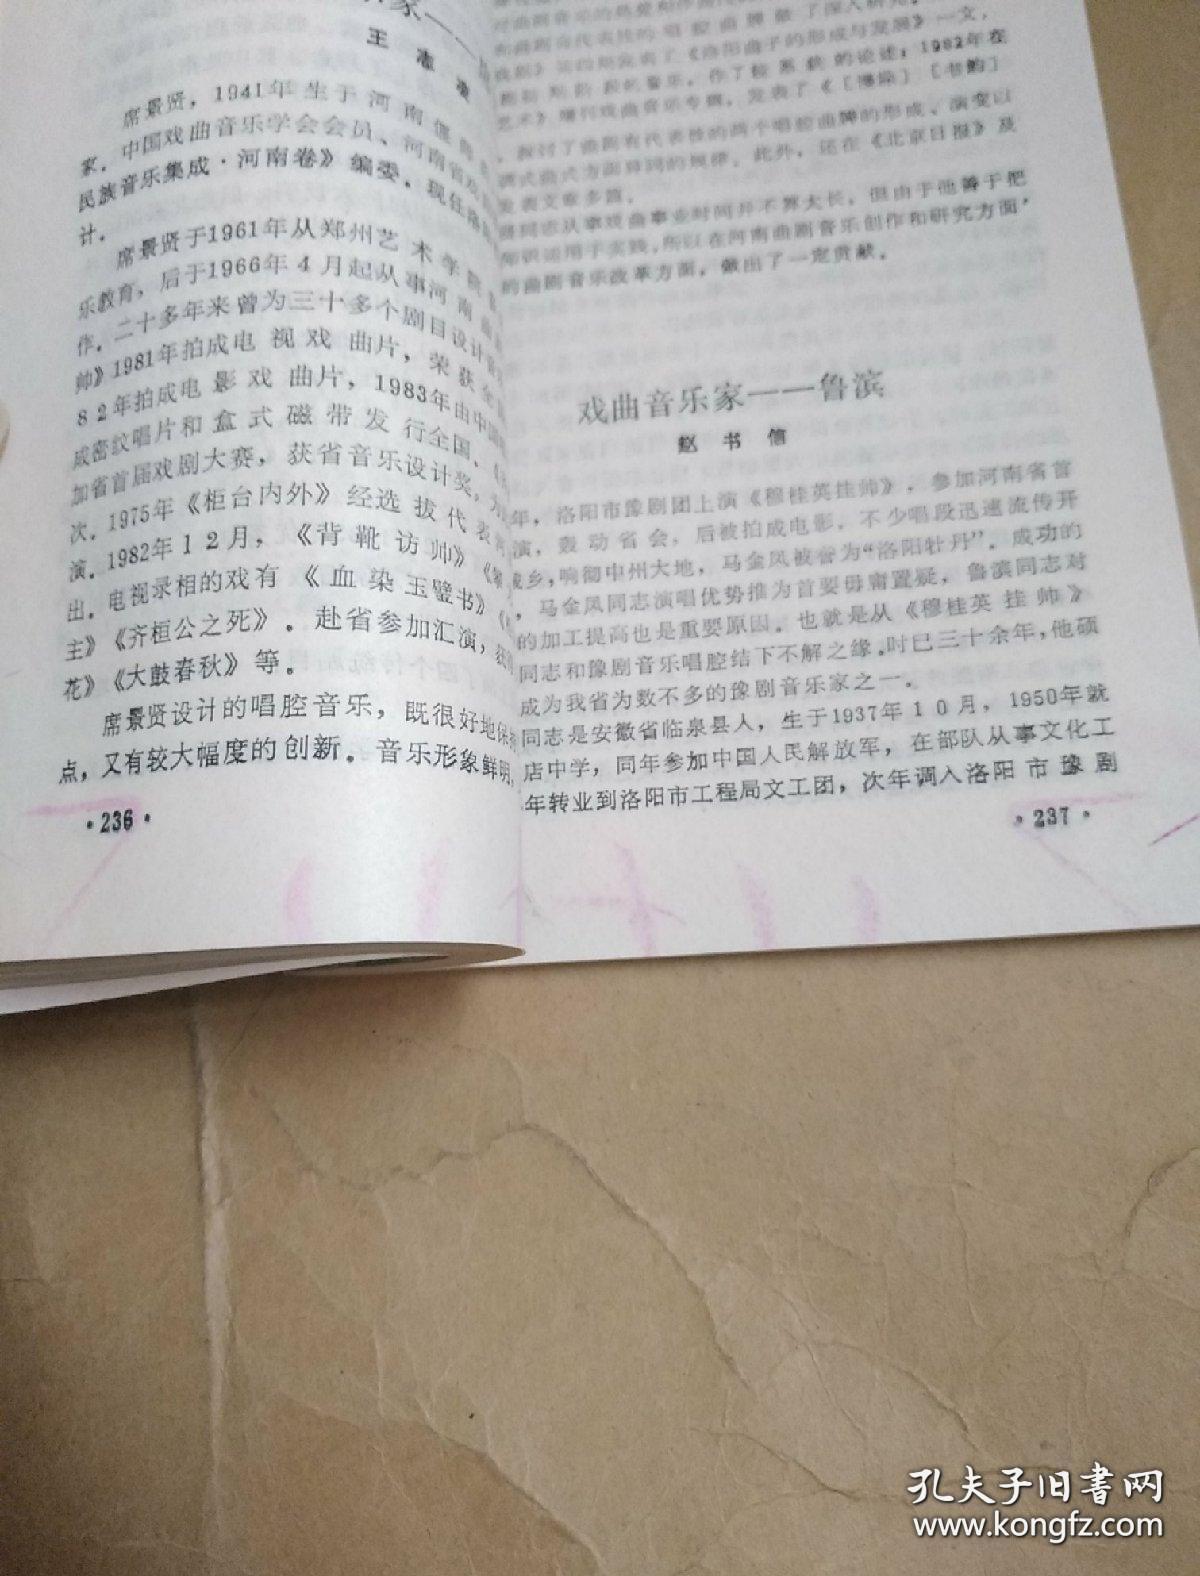 家——
王志凌
席景贤，1941年生于河南偃
家．中国戏曲音乐学会会员、河南省戏
民族音乐集成·河南卷》编委．现任洛
计．
席景贤于1961年从郑州艺术学院
乐教育，后于1966年4月起从事河南曲
作．二十多年来曾为三十多个剧目设计
帅》1981年拍成电视戏曲片，荣获全
82年拍成电影戏曲片，1983年由中国
成密纹唱片和盒式磁带发行全国、
加省首届戏剧大赛，获省音乐设计奖，
次．1975年《柜台内外》经选拔代表
演．1982年12月，《背靴访帅》
出．电视录相的戏有《血染玉璧书》
主》《齐桓公之死》．赴省参加汇演，
花》《大鼓春秋》等．
席景贤设计的唱腔音乐，既很好地保
点，又有较大幅度的创新．音乐形象鲜明，
·236·
和曲剧有代表性的唱腔曲牌做了深入研究．
戏剧》第四期发表了《洛阳曲子的形成与发展》一文，
音乐，作了较系统的论述；1982年在
艺术》增刊戏曲音乐专辑，发表了
，探讨了曲剧有代表性的两个唱腔曲牌的形成、演变以
调式曲式方面异同的规律．此外，还在《北京日报》及
发表文章多篇．
同志从事戏曲事业时间并不算太长，但由于他善于把
知识运用于实践，所以在河南曲剧音乐创作和研究方面，
的曲剧音乐改革方面，做出了一定贡献．
戏曲音乐家——鲁滨
赵书信
年，洛阳市豫剧团上演《穆桂英挂帅》．参加河南省首
演，轰动省会，后被拍成电影．不少唱段迅速流传开
城乡，响彻中州大地，马金凤被誉为“洛阳牡丹”．成功的
，马金凤同志演唱优势推为首要毋庸置疑，鲁滨同志对
的加工提高也是重要原因．也就是从《穆桂英挂帅》
同志和豫剧音乐唱腔结下不解之缘．时已三十余年，他硕
成为我省为数不多的豫剧音乐家之一．
同志是安徽省临泉县人，生于1937年10月，1950年就
店中学，同年参加中国人民解放军，在部队从事文化工
年转业到洛阳市工程局文工团，次年调入洛阳市豫剧
·237·
孔夫子旧书网
www.kongfz.com